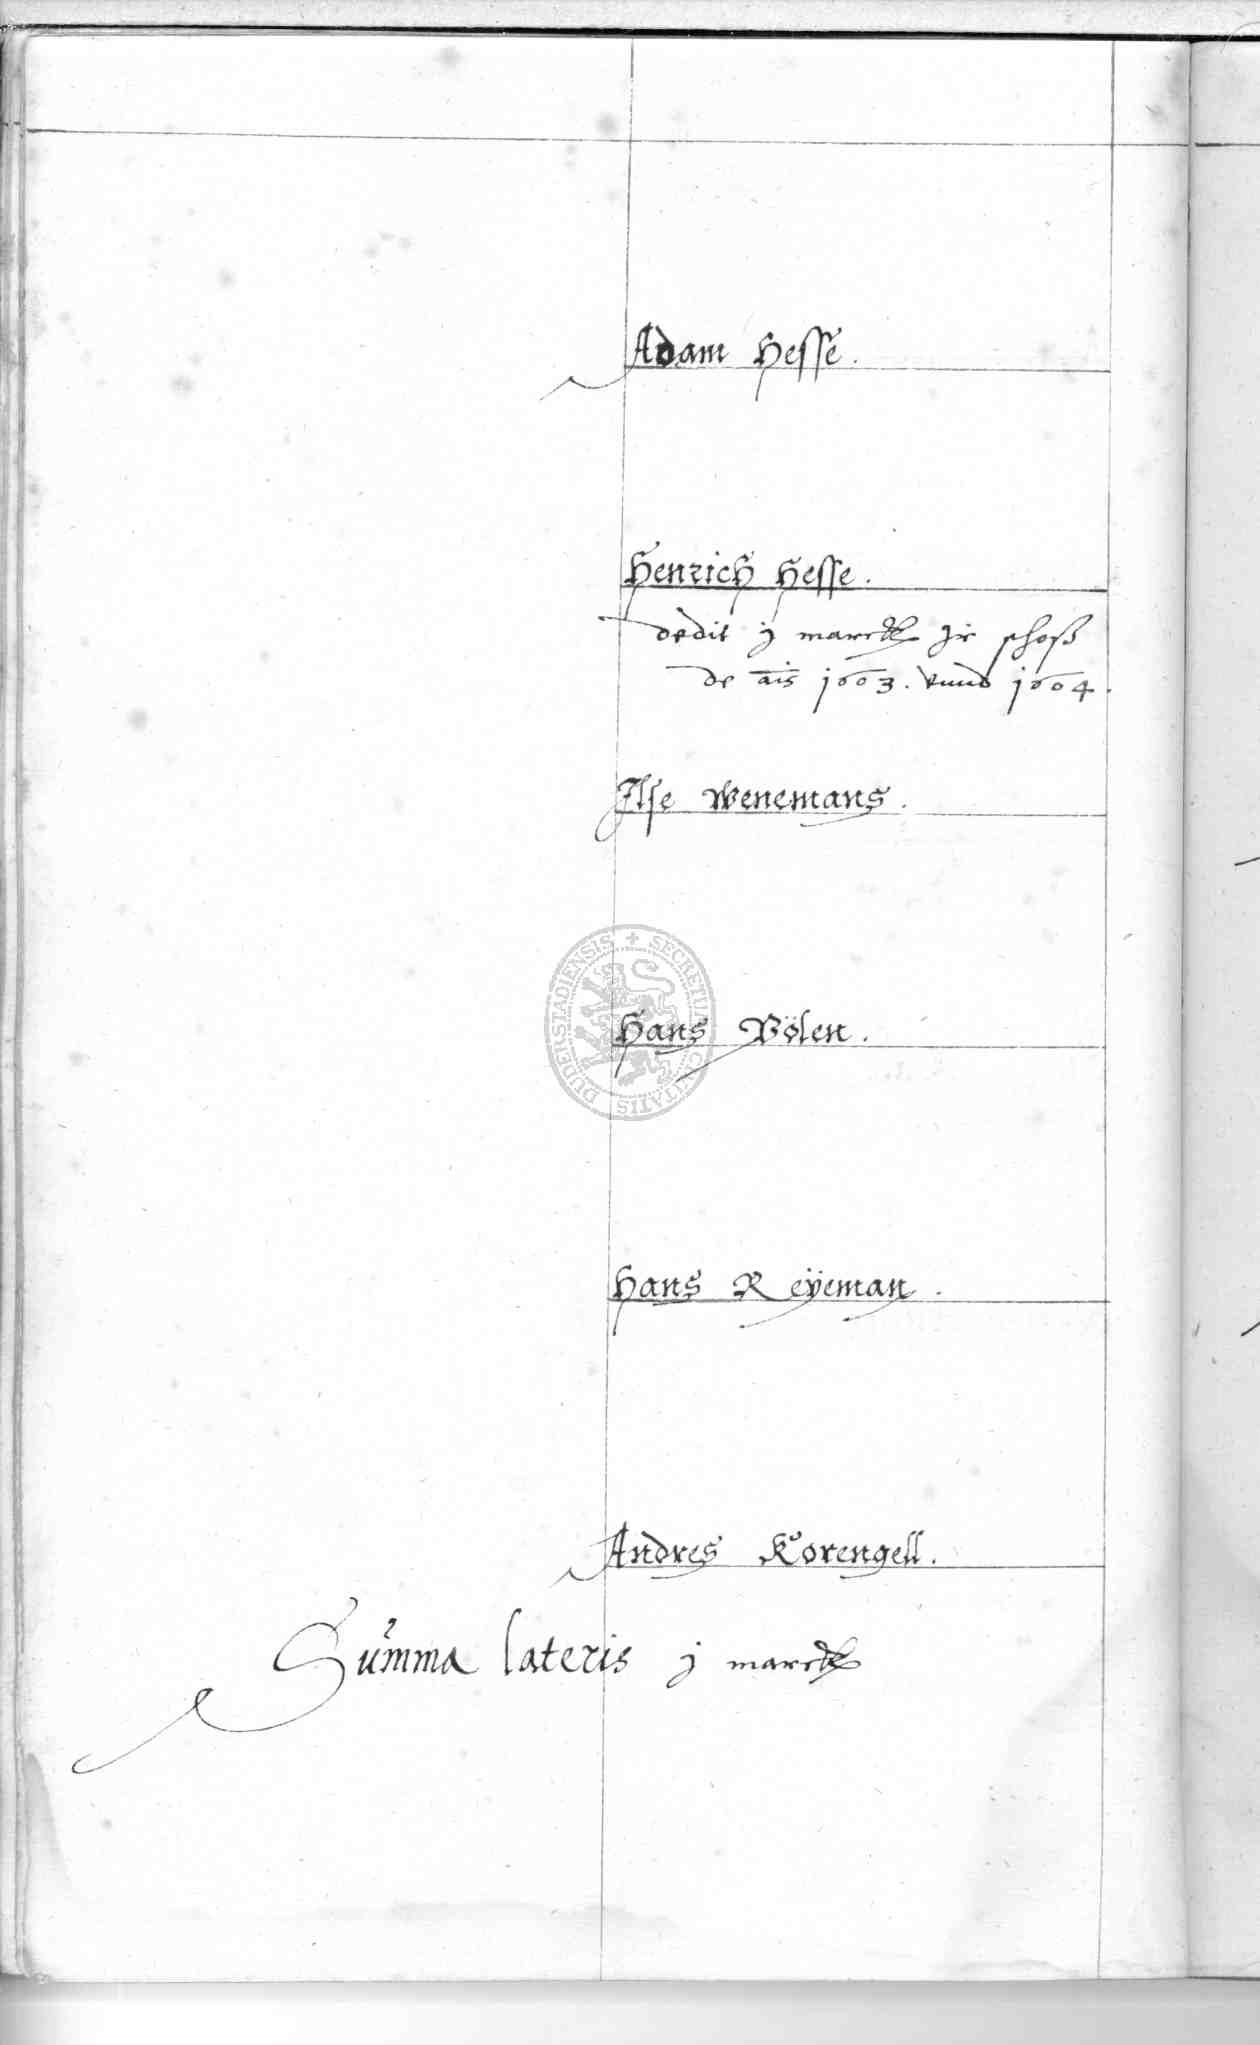 Adam Hesse.
Henrich Hesse.
dedit j marck Jr schoß
de ais 1603. vnnd 1604.
Ilse Wenemans.
Hans Völen.
Hans Reÿeman.
Andres Korengell.
Summa lateris j marck
DUDERSTADIENSIS + SECRETUM CIVITATIS